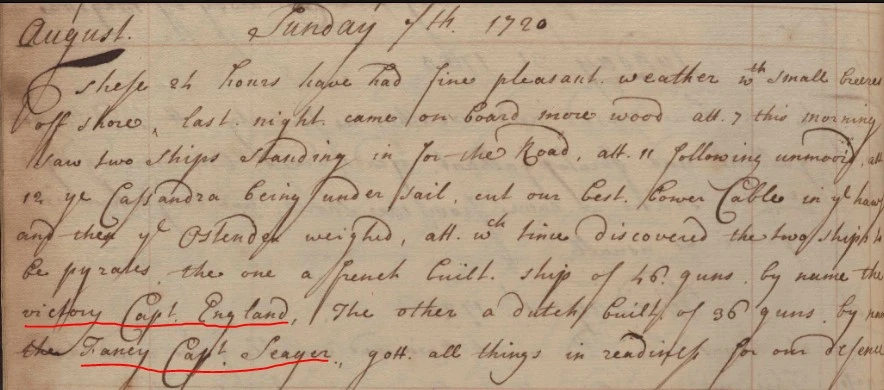 August. Sunday 7th. 1720
These 24 hours have had fine pleasant. weather wth small breezes
off shore, last. night. came on board more wood att. 7 this morning
saw two ships standing in for the Road, att. 11 following unmoor'd, att
12 ye Cassandra being under sail, cut our best. bower Cable in ye haws
and then ye Ostender weighed, att. wch time discovered the two ships to
be pyrates. the one a french built. ship of 46. guns. by name the
victory Capt. England, The other a dutch built of 36 guns. by name
the Fancy Capt. Seager, gott. all things in readiness for our defence